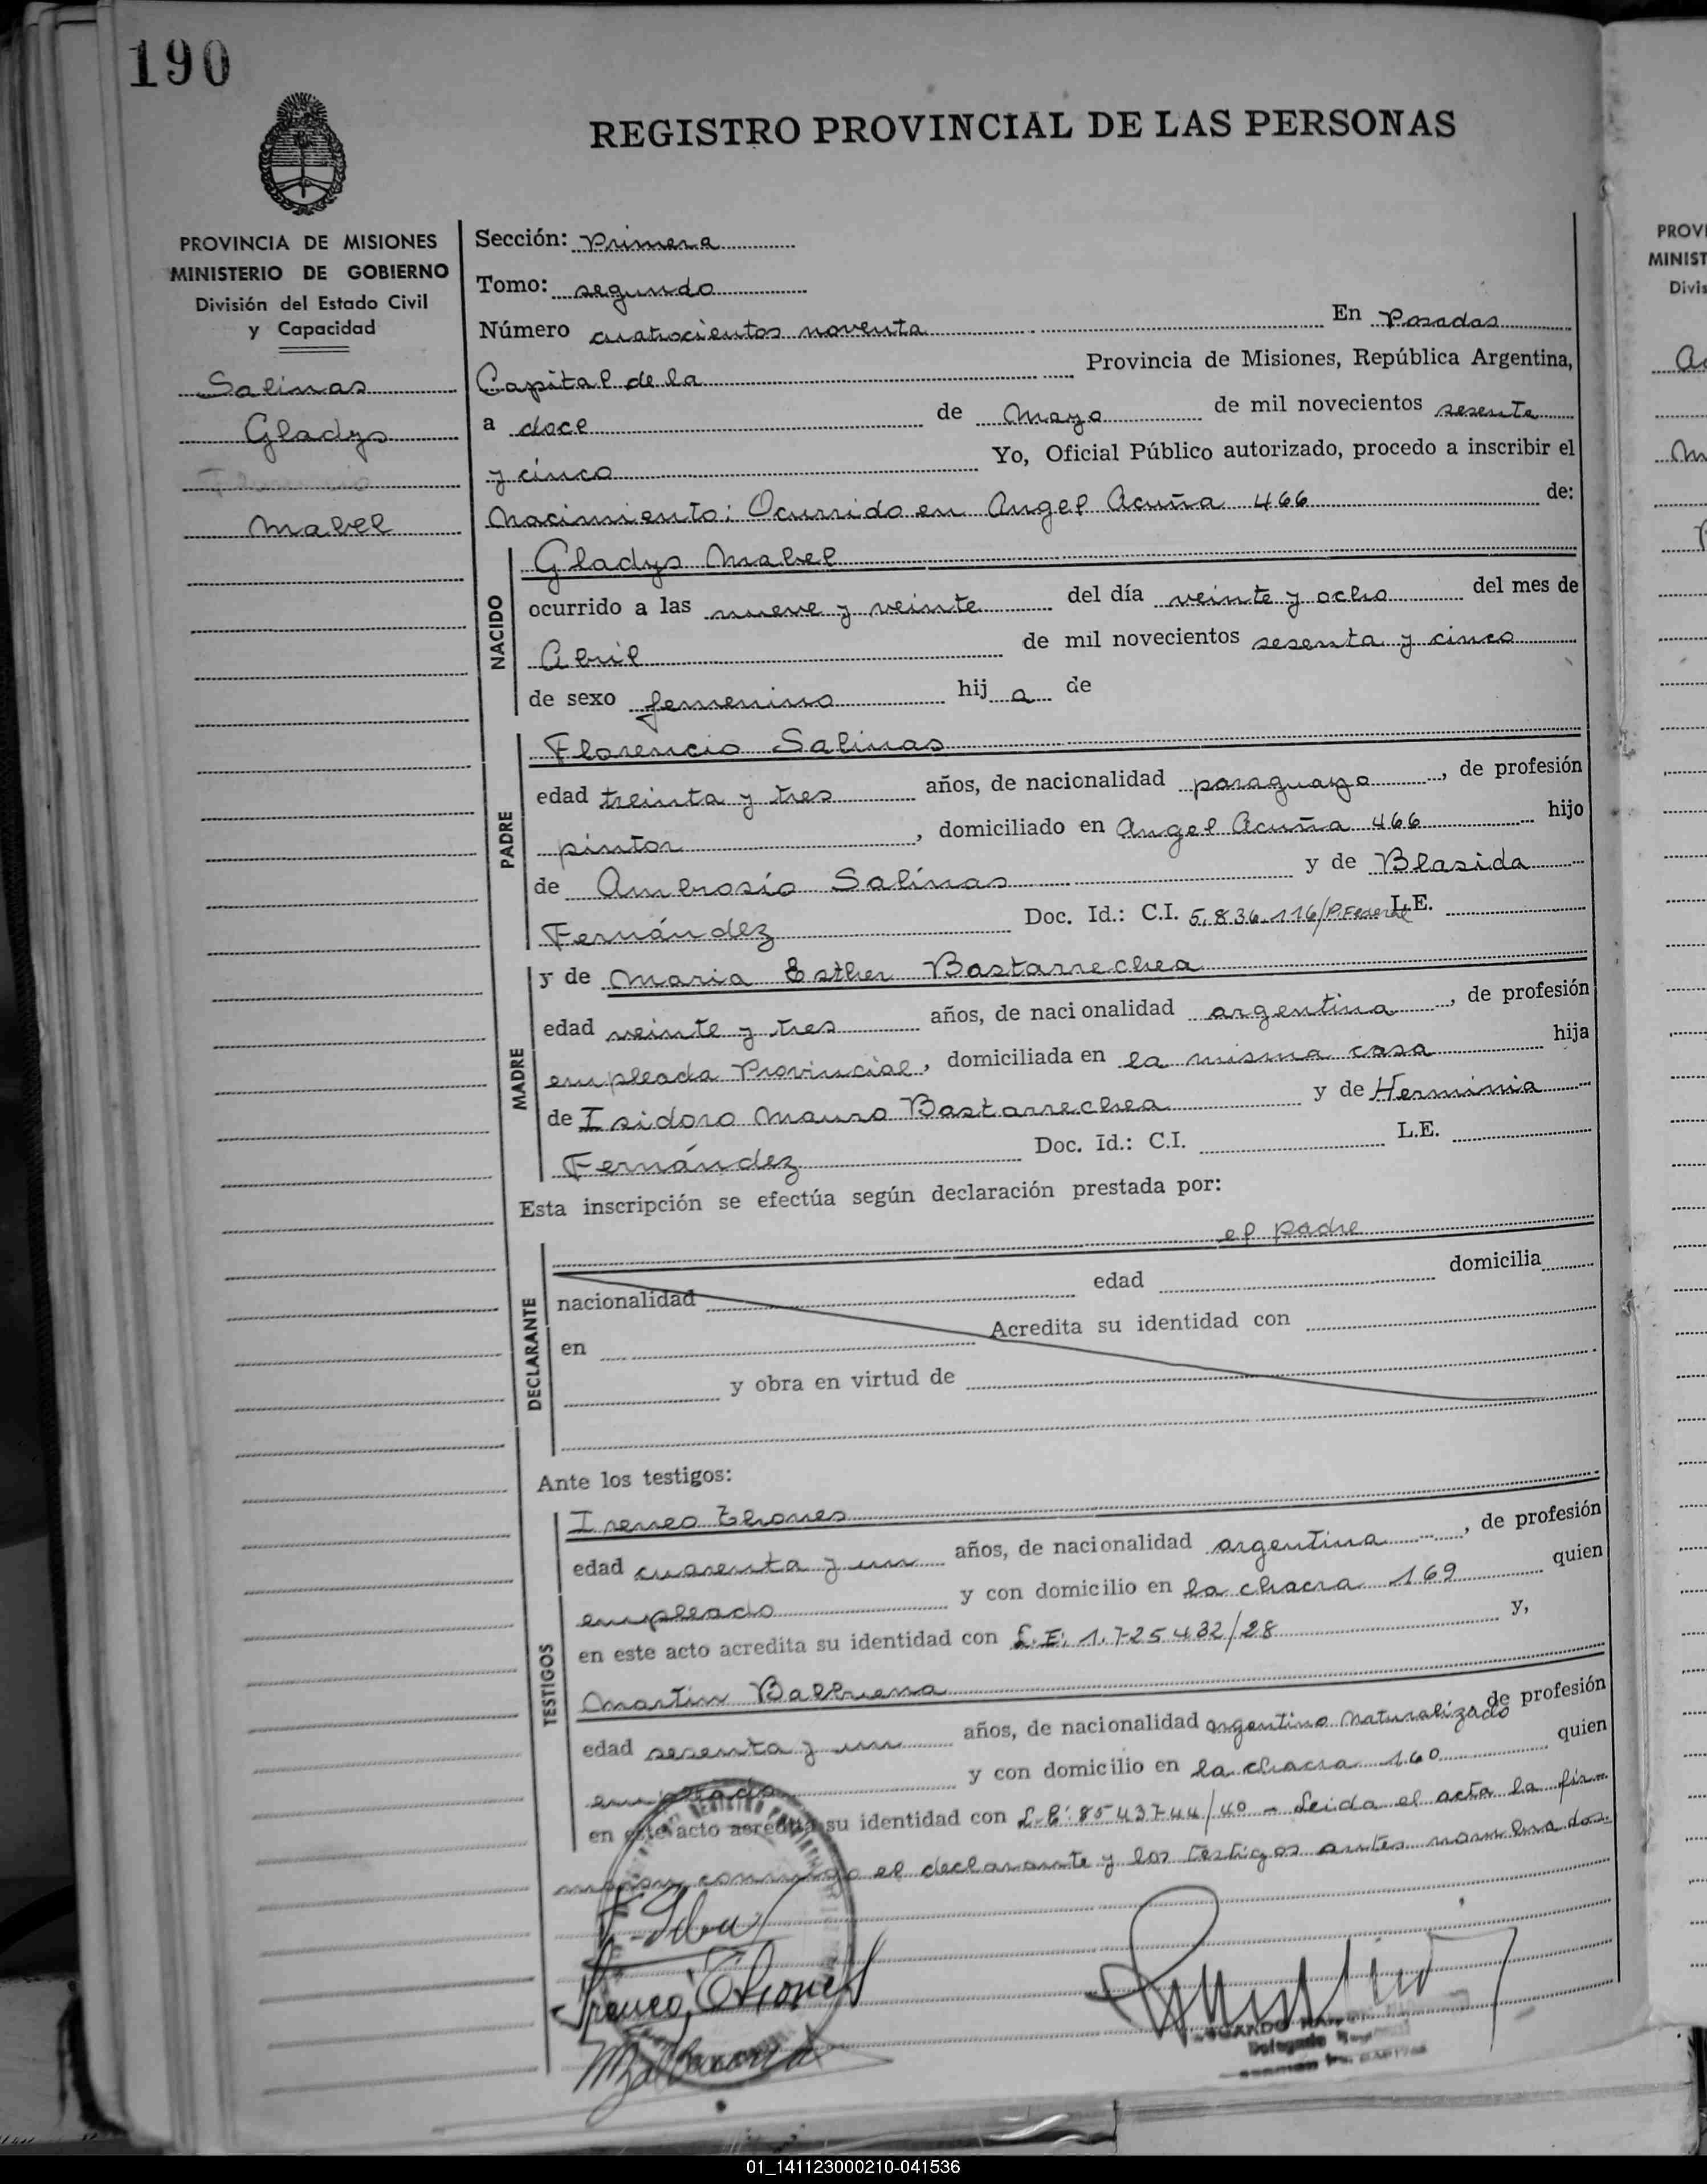 190
REGISTRO PROVINCIAL DE LAS PERSONAS
PROVINCIA DE MISIONES
MINISTERIO DE GOBIERNO
División del Estado Civil
y Capacidad
Salinas
Gladys
Mabel
Sección: Primera
Tomo: segundo
Número cuatrocientos noventa En Posadas
Capital de la Provincia de Misiones, República Argentina,
a doce de Mayo de mil novecientos sesenta
y cinco Yo, Oficial Público autorizado, procedo a inscribir el
Nacimiento: Ocurrido en Angel Acuña 466 de:
NACIDO
Gladys Mabel
ocurrido a las nueve y veinte del día veinte y ocho del mes de
Abril de mil novecientos sesenta y cinco
de sexo femenino hij a de
PADRE
Florencio Salinas
edad treinta y tres años, de nacionalidad paraguayo, de profesión
pintor, domiciliado en Angel Acuña 466 hijo
de Ambrosio Salinas y de Blasida
Fernández Doc. Id.: C.I. 5.836.116/P.Federal L.E.
MADRE
y de Maria Esther Bastarrechea
edad veinte y tres años, de nacionalidad argentina, de profesión
empleada Provincial, domiciliada en la misma casa hija
de Isidoro Mauro Bastarrechea y de Herminia
Fernández Doc. Id.: C.I. L.E.
Esta inscripción se efectúa según declaración prestada por:
el padre
DECLARANTE
nacionalidad edad domicilia
en Acredita su identidad con
y obra en virtud de
Ante los testigos:
TESTIGOS
Ireneo
edad cuarenta y un años, de nacionalidad argentina, de profesión
empleado y con domicilio en la chacra 169 quien
en este acto acredita su identidad con L.E. 1.725432/28 y,
Martin Balbuena
edad sesenta y un años, de nacionalidad argentino Naturalizado de profesión
empleado y con domicilio en la chacra 160 quien
en este acto acredita su identidad con 8543744/40 - Leida el acta la fir-
conmigo el declarante y los testigos antes nombrados.
Delegado
PROV
MINIST
Divis
01_141123000210-041536